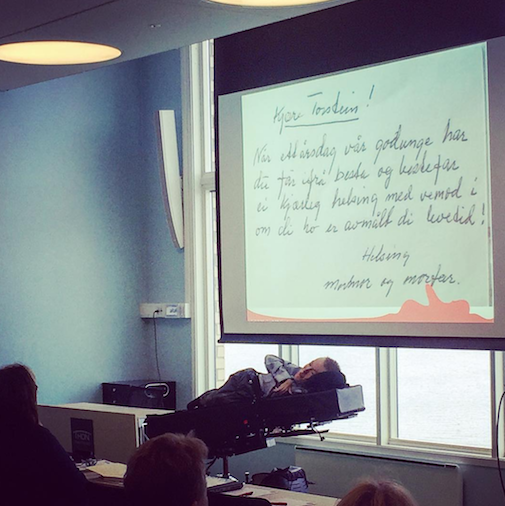 Kjære Torstein!
Når ettårsdag vår godunge har
du får ifrå beste og bestefar
ei kjærleg helsing med vemod i
om di ho er avmålt di levetid!
Helsing
mormor og morfar.